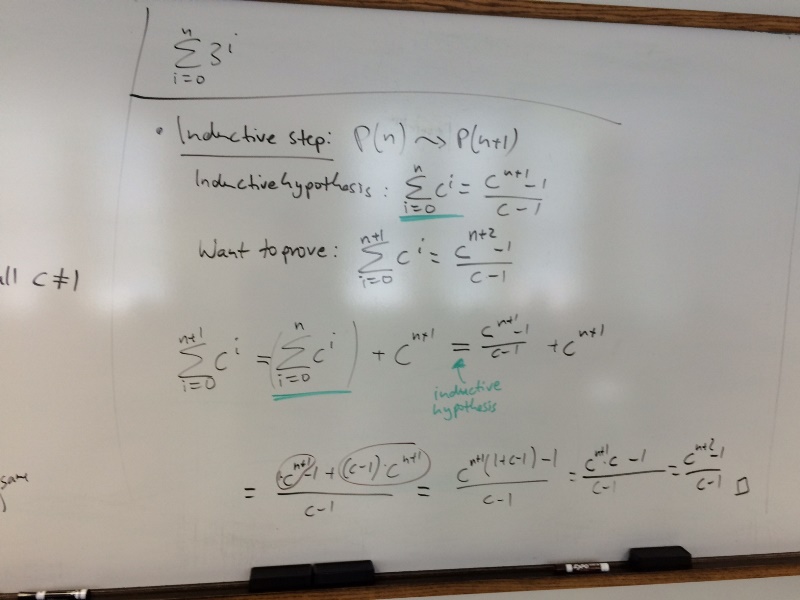 n
∑ 3^i
i=0
• Inductive step: P(n) ⤳ P(n+1)
Inductive hypothesis: ∑_{i=0}^{n} c^i = (c^{n+1} - 1)/(c - 1)
Want to prove: ∑_{i=0}^{n+1} c^i = (c^{n+2} - 1)/(c - 1)
all c ≠ 1
∑_{i=0}^{n+1} c^i = (∑_{i=0}^{n} c^i) + c^{n+1} = (c^{n+1} - 1)/(c - 1) + c^{n+1}
inductive
hypothesis
= (c^{n+1} - 1 + (c-1)·c^{n+1})/(c - 1) = (c^{n+1}(1+c-1) - 1)/(c - 1) = (c^{n+1}·c - 1)/(c - 1) = (c^{n+2} - 1)/(c - 1) □
same